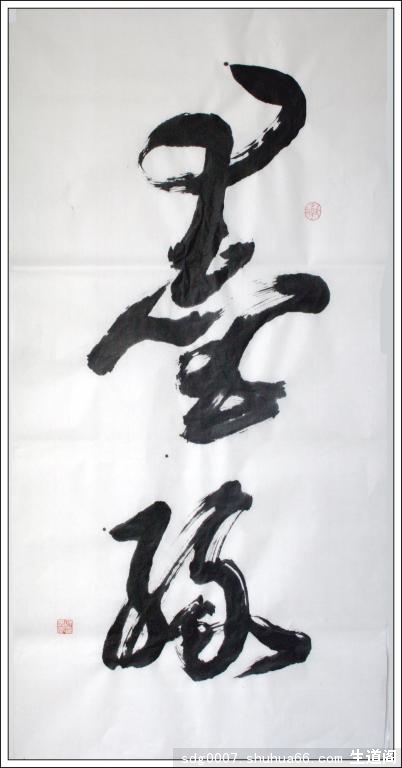 墨缘
sdg0007 shuhua66.com 生道阁